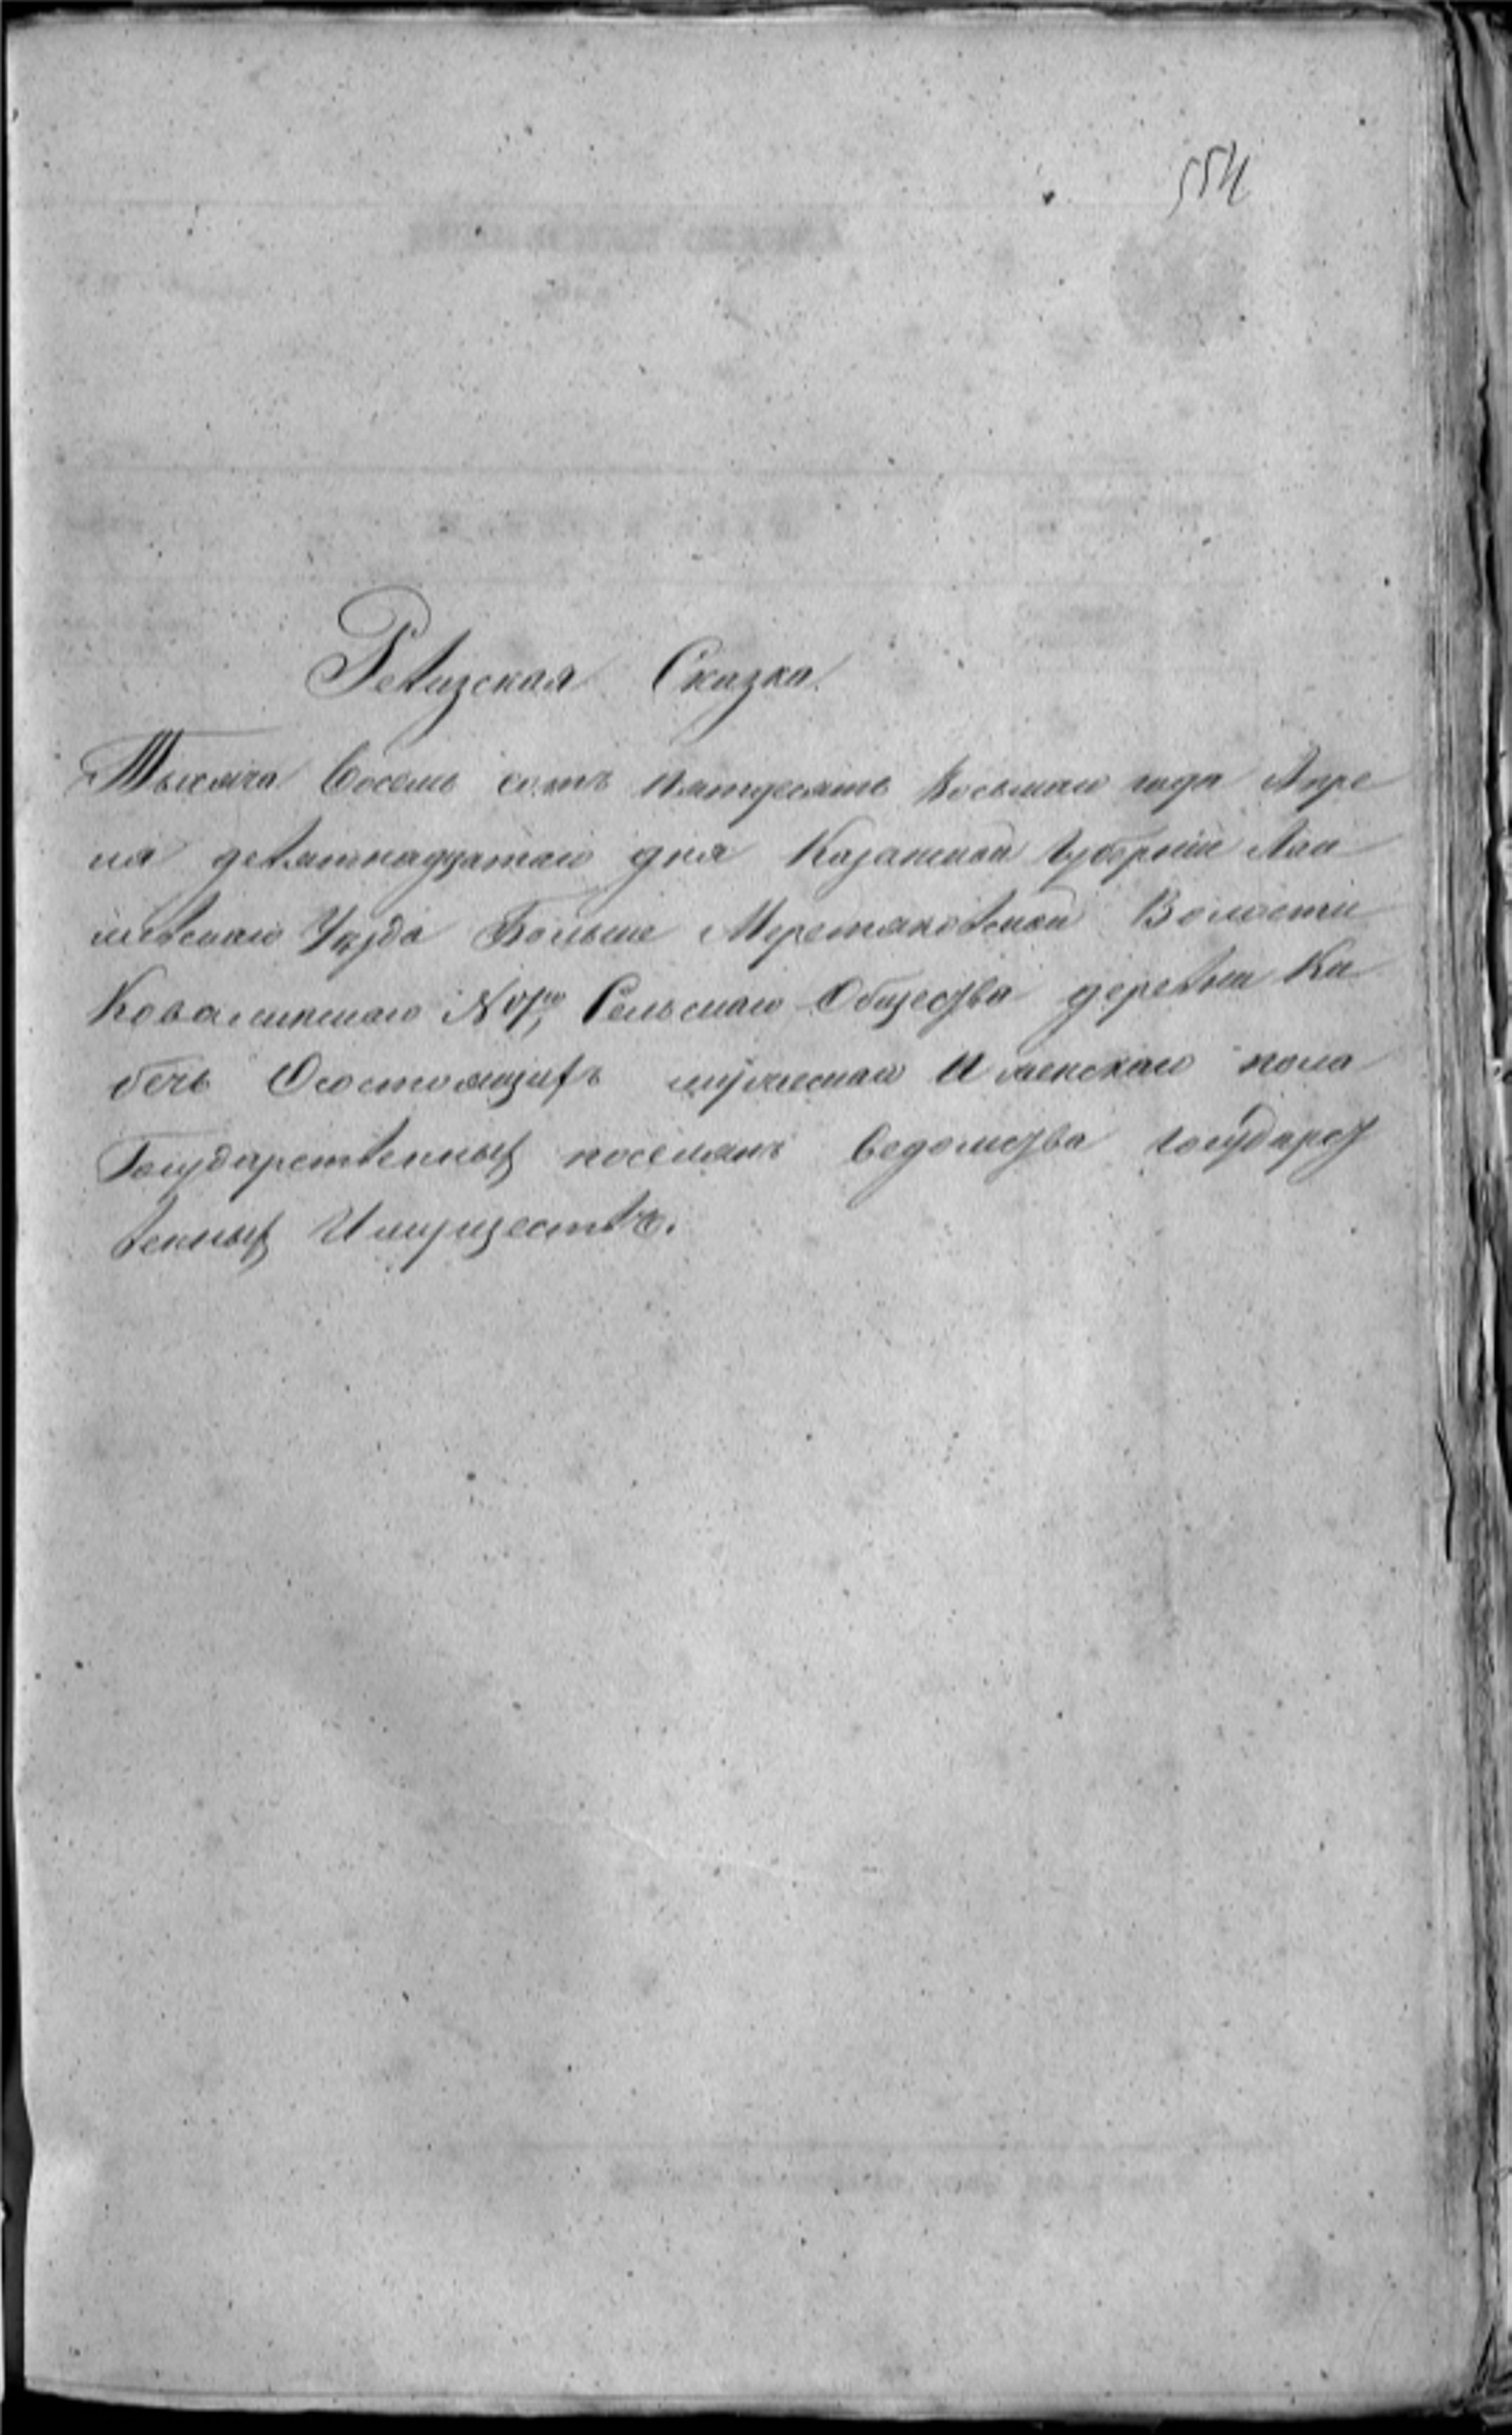 554
Ревизская Сказка.
Тысяча восемь сотъ пятдесятъ восьмаго года Апре
ля девятнадцатаго дня Казанской Губерніи Лаи
шевскаго Уѣзда Больше Меретяковской Волости
Ковалинскаго Сельскаго Общества деревни Ка
бечь О состоящихъ мужескаго И женскаго пола
Государственныхъ поселянъ ведомства Государст
венныхъ Имуществъ.